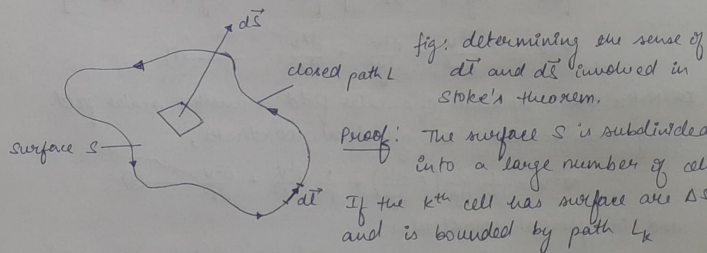 dS
closed path L
surface S
dl
fig: determining the sense of
dl and dS involved in
Stoke's theorem.
Proof: The surface S is subdivided
into a large number of cel
If the kth cell has surface are ΔS
and is bounded by path Lk